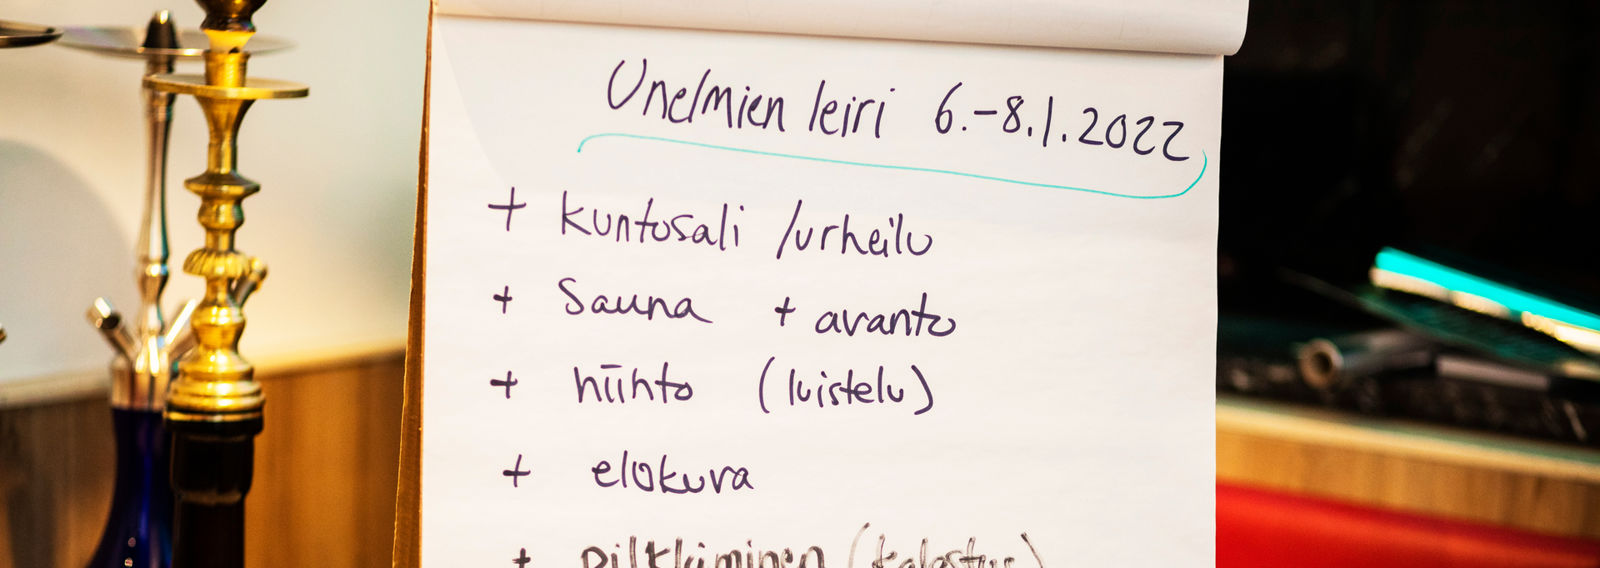 Unelmien leiri 6.-8.1.2022
+ kuntosali /urheilu
+ Sauna + avanto
+ hiihto (luistelu)
+ elokuva
+ pilkkiminen (kalastus)